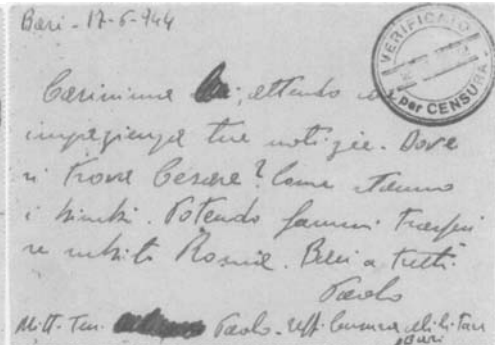 Bari - 17-6-944
VERIFICATO
per CENSURA
Carissima attendo
impazienza tue notizie. Dove
si trova Cesare? Come stanno
i bimbi. Potendo fammi trasferi
re subito Roma. Baci a tutti.
Paolo
Mitt. Ten. Paolo - Uff. Censura Militare
Bari